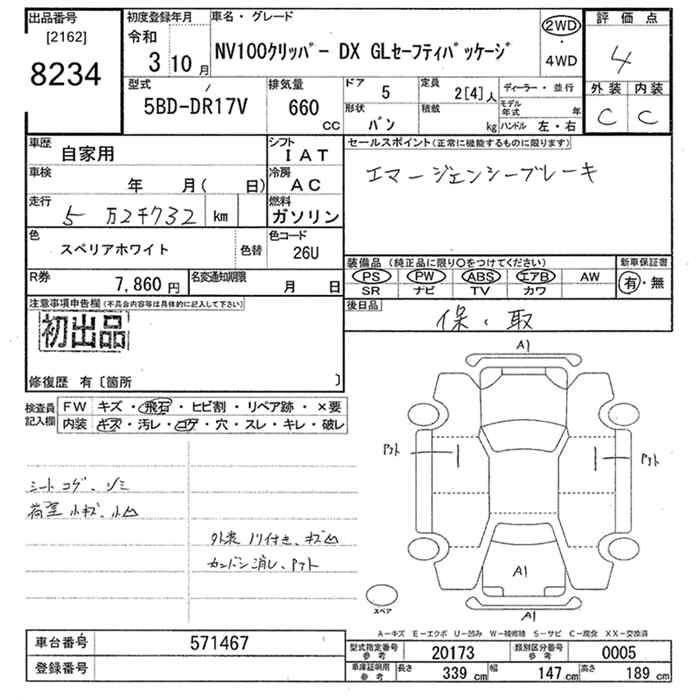 出品番号 [2162] 8234
初度登録年月 令和 3 10 月
車名・グレード NV100クリッパー DX GLセーフティパッケージ
2WD ・ 4WD
評価点 4
外装 C 内装 C
型式 5BD-DR17V
排気量 660 CC
ドア 5
定員 2[4]人
形状 バン
積載 kg
ディーラー・並行
モデル年式 年
ハンドル 左・右
車歴 自家用
シフト IAT
車検 年 月( 日)
冷房 AC
走行 5万2千732 km
燃料 ガソリン
色 スペリアホワイト 色替
色コード 26U
R券 7,860円
名変通知期限 月 日
セールスポイント(正常に機能するものに限ります)
エマージェンシーブレーキ
装備品(純正品に限り○をつけてください)
PS PW ABS エアB AW
SR ナビ TV カワ
新車保証書 有・無
後日品 保・取
注意事項申告欄(不具合内容等は具体的に記入して下さい)
初出品
修復歴 有〔箇所 〕
検査員記入欄
FW キズ・飛石・ヒビ割・リペア跡・×要
内装 キズ・汚レ・コゲ・穴・スレ・キレ・破レ
シートコゲ、ゾミ
荷室小キズ、小凹
外装 ノリ付き、キズ凹
カンバン消し、アト
A1
アト
アト
A1
A1
スペア
A-キズ E-エクボ U-凹み W-補修跡 S-サビ C-腐食 XX-交換済
車台番号 571467
登録番号
型式指定番号 参考 20173
類別区分番号 参考 0005
車庫証明用 参考 長さ 339 cm 幅 147 cm 高さ 189 cm